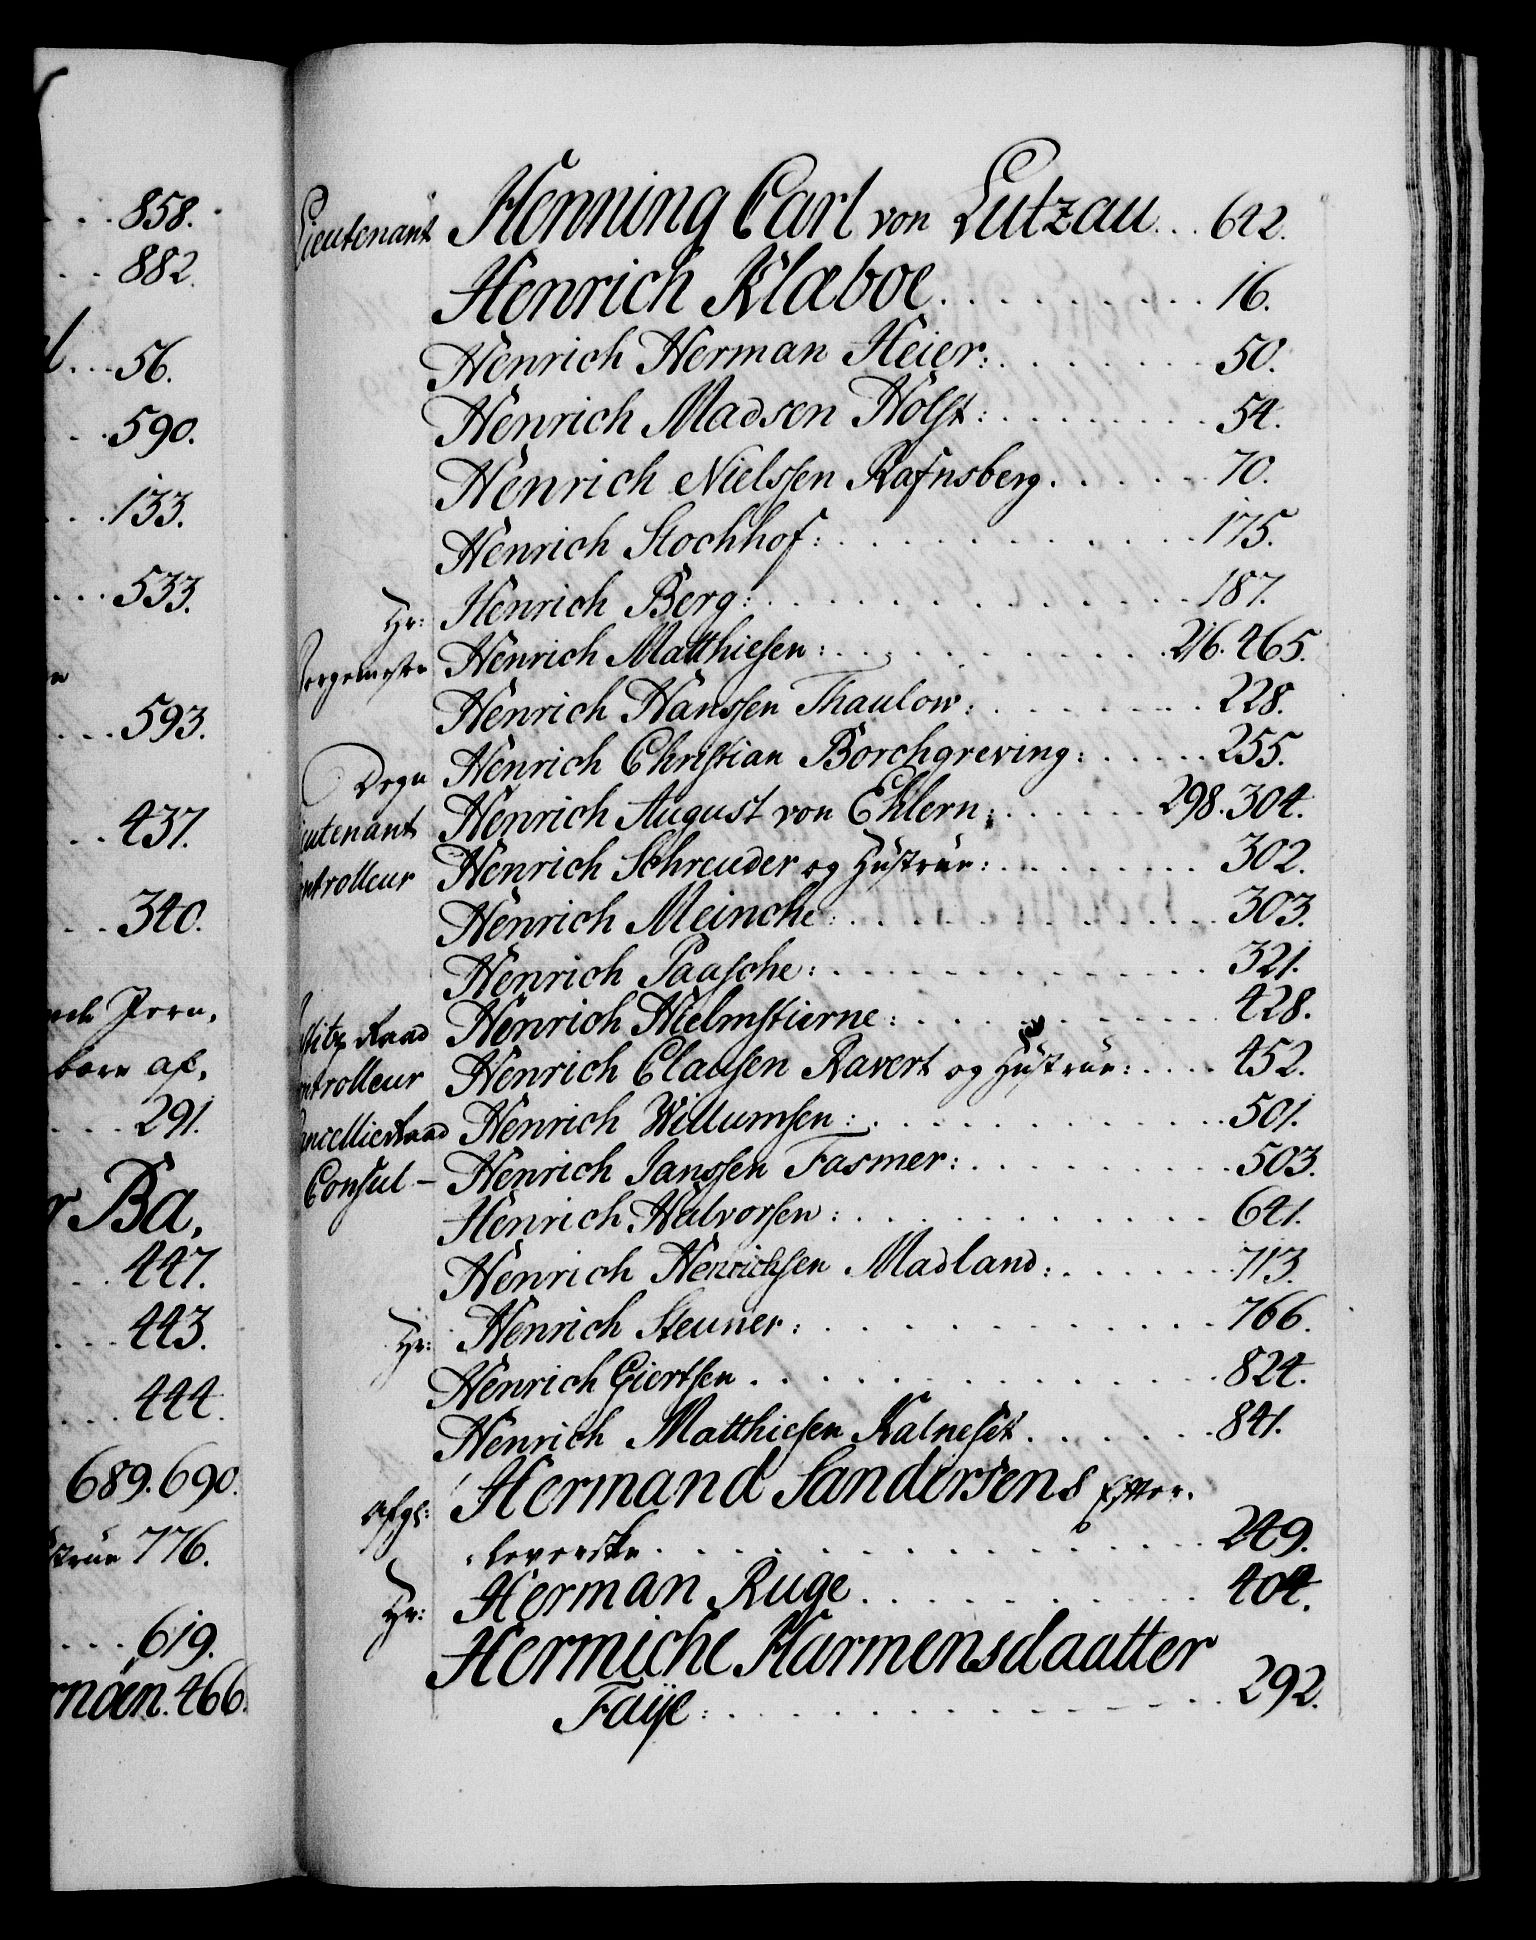 858.
882.
56.
590.
133.
533.
593.
437.
340.
291.
Ba,
447.
443.
444.
689. 690.
776.
619.
466.
Lieutenant Henning Carl von Lutzau . . . 642.
Henrich Klæboe . . . 16.
Henrich Herman Heier: . . . 50.
Henrich Madsen Holst: . . . 54.
Henrich Nielssen Rafnsberg . . . 70.
Henrich Stochhof: . . . 175.
Hr: Henrich Berg: . . . 187.
Henrich Matthiesen: . . . 216. 465.
Henrich Hanssen Thaulow: . . . 228.
Degn Henrich Christian Borchgreving: . . . 255.
ieutenant Henrich August von Ehlern: . . . 298. 304.
ontrolleur Henrich Schreuder og Hustrue: . . . 302.
Henrich Meinche: . . . 303.
Henrich Paasche: . . . 321.
Raad Henrich Hielmstierne: . . . 428.
ontrolleur Henrich Clausen Ravert og Hustrue: . . . 452.
ancellieRaad Henrich Willumsen: . . . 501.
Consul – Henrich Janssen Fasmer: . . . 503.
Henrich Halvorsen: . . . 641.
Henrich Henrichsen Madland: . . . 713.
Hr: Henrich Steuner: . . . 766.
Henrich Giertsen . . . 824.
Henrich Matthiesen Kalneset . . . 841.
Afgl: Hermand Sandersens Efter-
leverske . . . 249.
Hr: Herman Ruge . . . 404.
Hermiche Harmensdaatter
Faÿe: . . . 292.